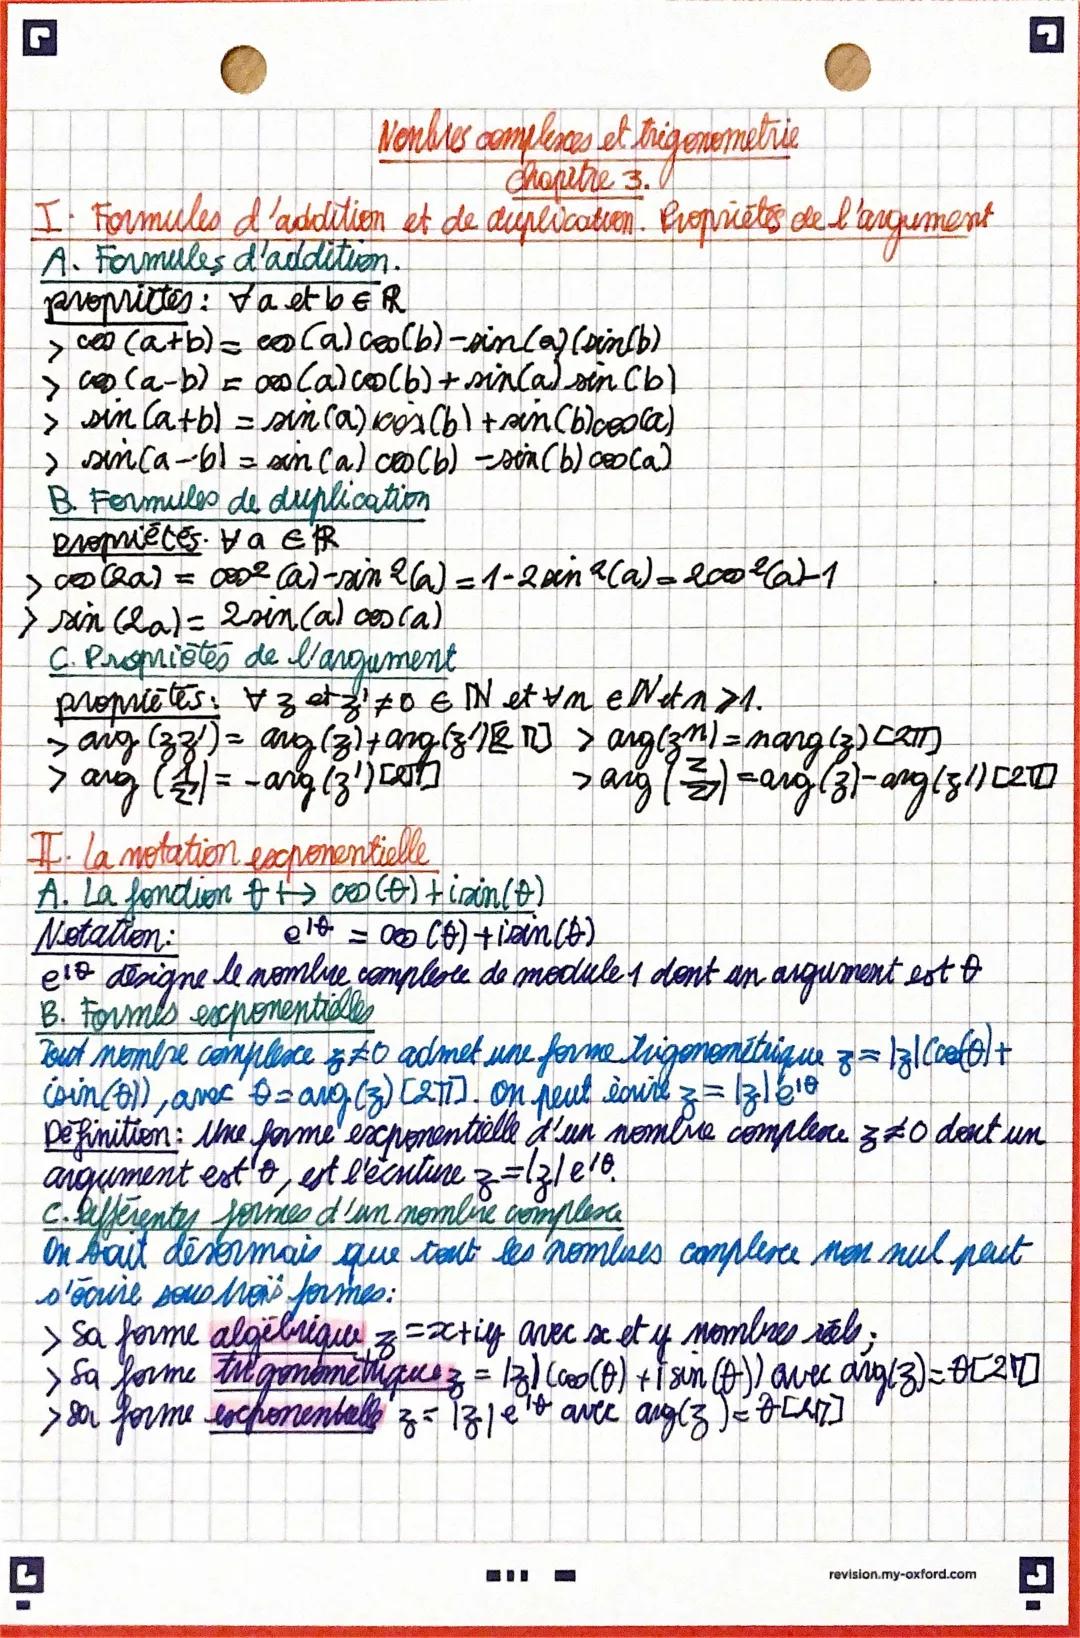 Nombres complexes et trigonometrie
chapitre 3.
I. Formules d'addition et de duplication. Propriétés de l'argument
A. Formules d'addition.
propriétés: ∀ a et b ∈ ℝ
> cos (a+b) = cos (a) cos(b) - sin(a) (sin(b)
> cos (a-b) = cos (a) cos(b) + sin(a) sin (b)
> sin (a+b) = sin (a) cos (b) + sin(b) cos(a)
> sin(a-b) = sin (a) cos(b) - sin(b) cos(a)
B. Formules de duplication
propriétés. ∀ a ∈ ℝ
> cos (2a) = cos² (a) - sin² (a) = 1 - 2 sin² (a) = 2cos² (a) - 1
> sin (2a) = 2 sin(a) cos (a)
C. Propriétés de l'argument
propriétés: ∀ z et z' ≠ 0 ∈ ℕ et ∀n ∈ ℕ et n ≥ 1.
> arg (zz') = arg (z) + arg(z') [2π] > arg(zⁿ) = n arg (z) [2π]
> arg (1/z') = - arg (z') [2π] > arg (z/z') = arg (z) - arg (z') [2π]
II. La notation exponentielle
A. La fonction θ ↦ cos (θ) + i sin (θ)
Notation: e^iθ = cos (θ) + i sin (θ)
e^iθ désigne le nombre complexe de module 1 dont un argument est θ
B. Formes exponentielles
Tout nombre complexe z ≠ 0 admet une forme trigonométrique z = |z| (cos(θ) +
i sin(θ)), avec θ = arg (z) [2π]. On peut écrire z = |z| e^iθ
Définition: Une forme exponentielle d'un nombre complexe z ≠ 0 dont un
argument est θ, est l'écriture z = |z| e^iθ.
C. Différentes formes d'un nombre complexe
On sait désormais que tout les nombres complexe non nul peut
s'écrire sous trois formes:
> Sa forme algébrique z = x + iy avec x et y nombres réels;
> Sa forme trigonométrique z = |z| (cos(θ) + i sin (θ)) avec arg(z) = θ [2π]
> Sa forme exponentielle z = |z| e^iθ avec arg(z) = θ [2π]
revision.my-oxford.com